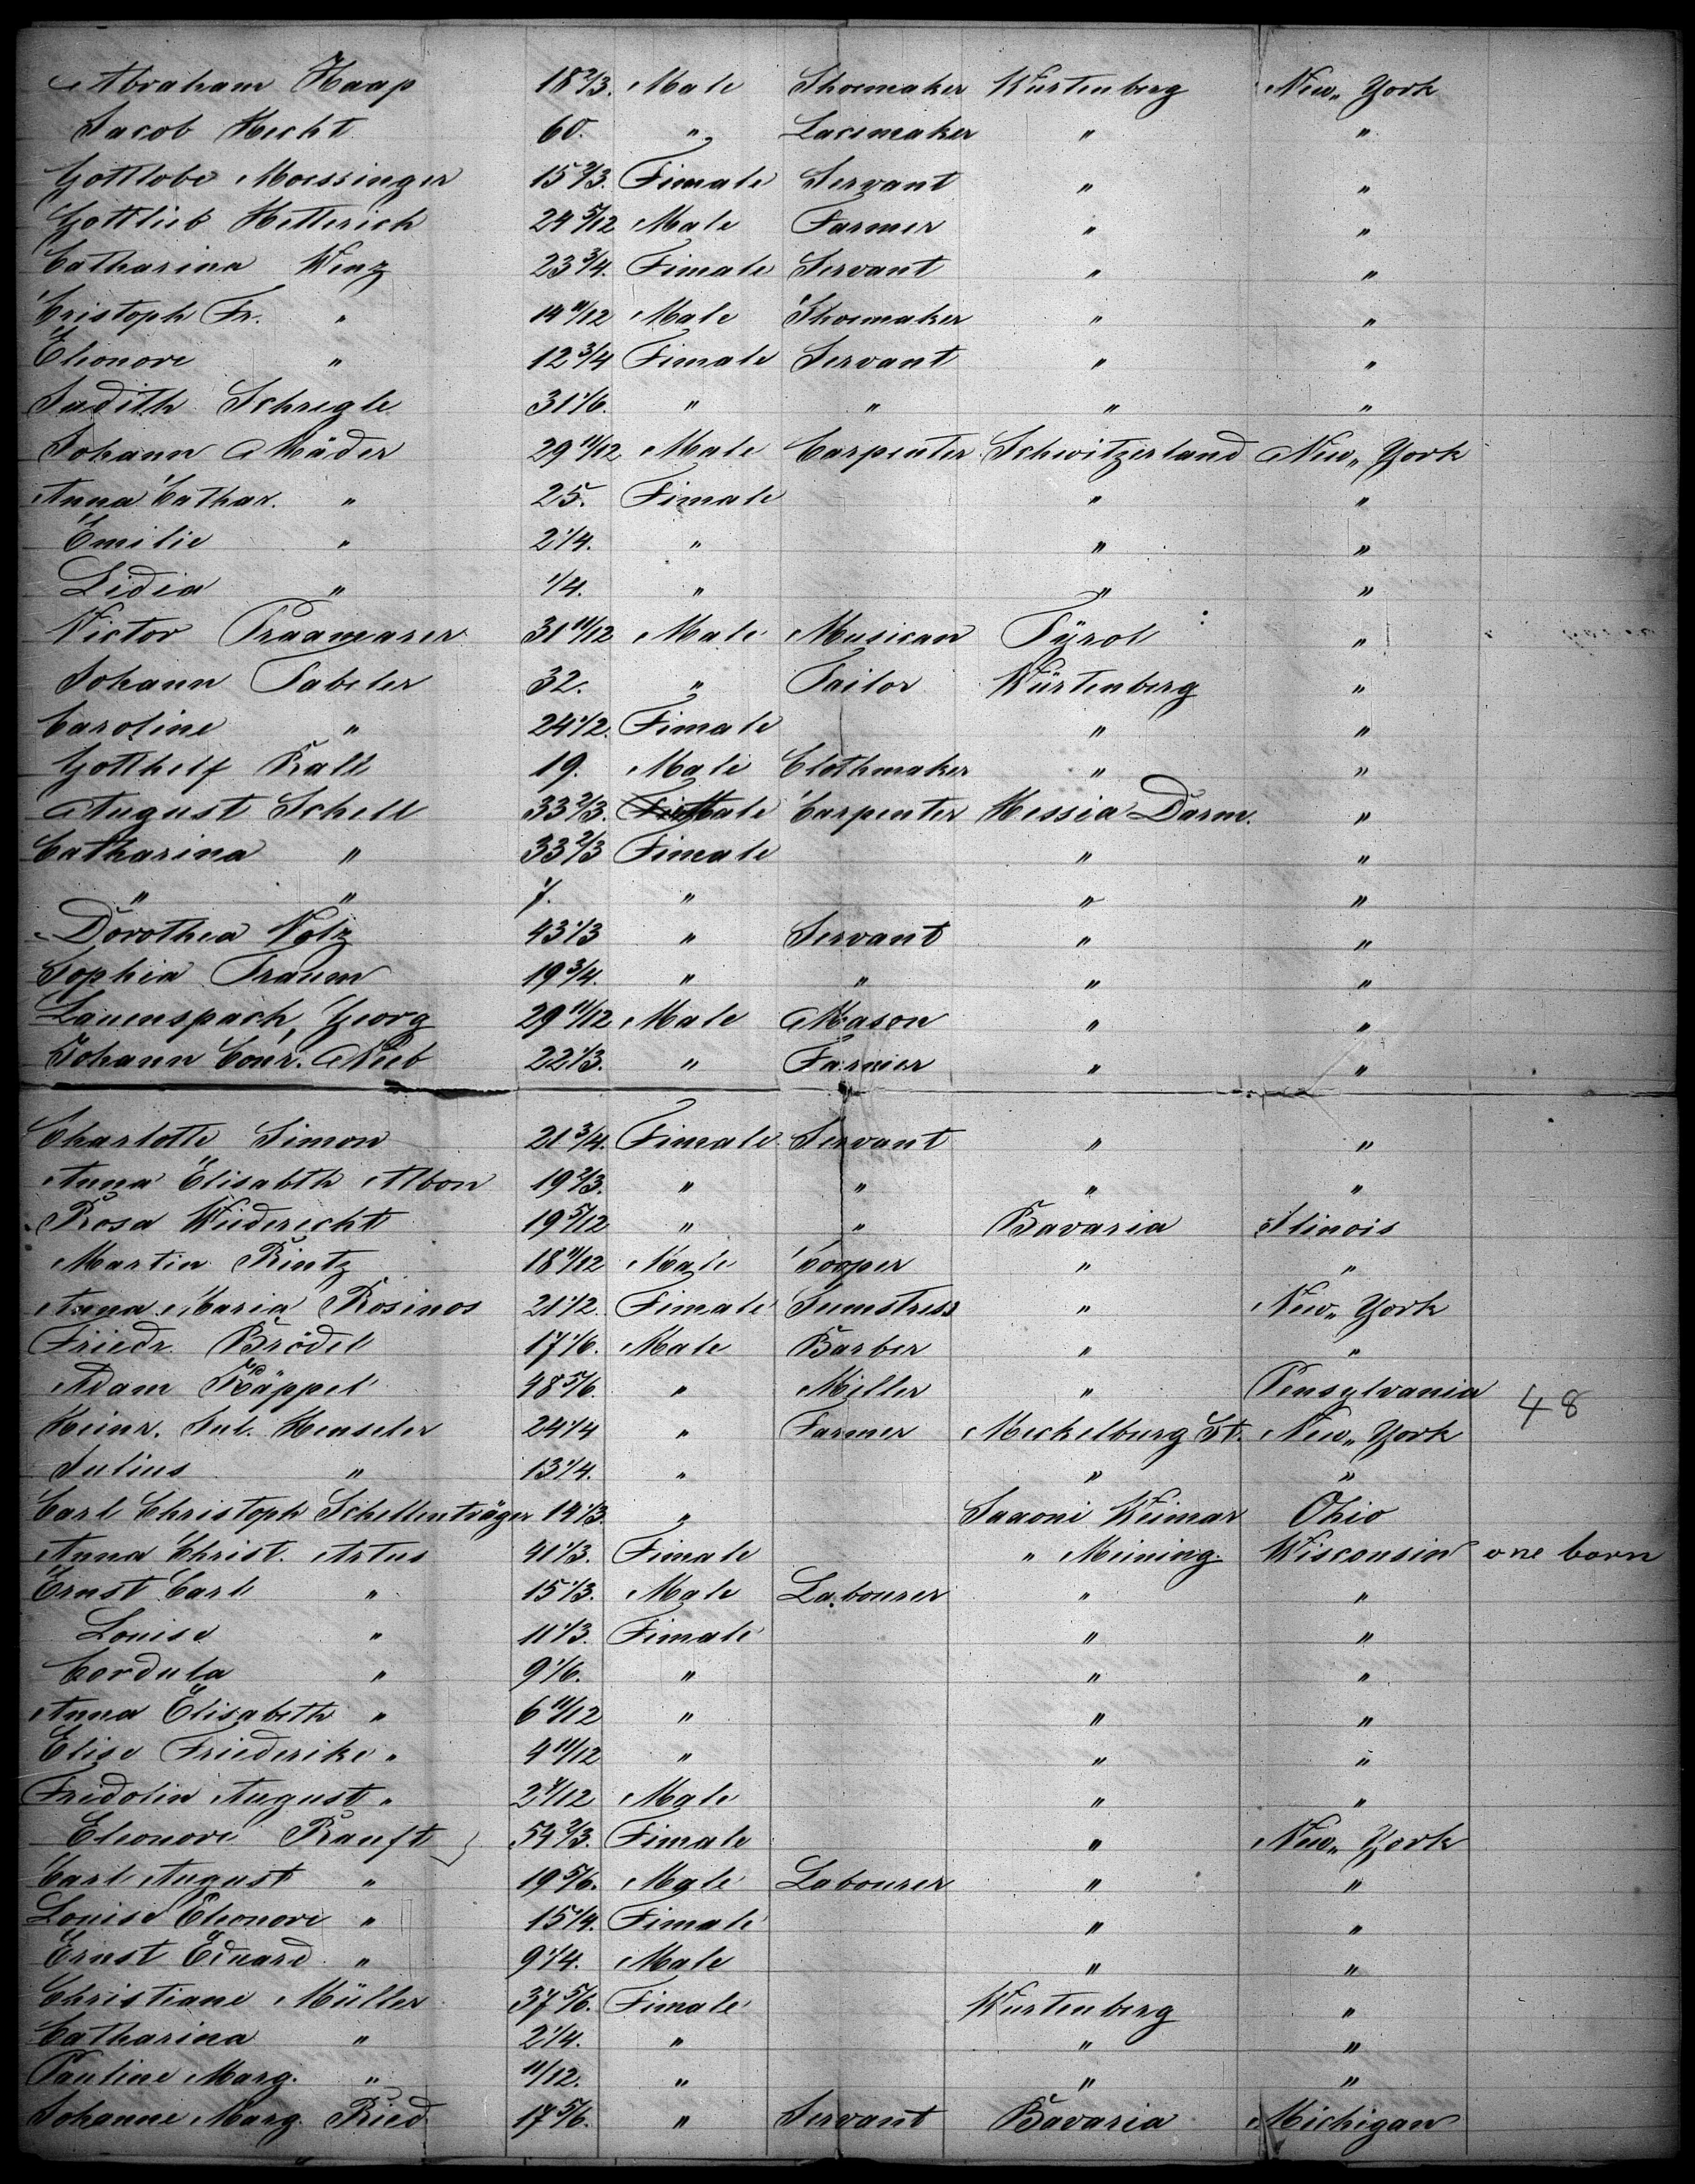 Abraham Haap 18 2/3. Male Shoemaker Würtenberg New York
Jacob Hecht 60. " Lacemaker " "
Gottlobe Moessinger 15 2/3. Fimale Servant " "
Gottlieb Hetterich 24 5/12 Male Farmer " "
Catharina Wenz 23 3/4. Fimale Servant " "
Cristoph Fr. " 14 11/12 Male Shoemaker " "
Eleonore " 12 3/4 Fimale Servant " "
Judith Schregle 31 1/6. " " " "
Johann Mäder 29 11/12 Male Carpenter Schwitzerland New York
Anna Cathar. " 25. Fimale " "
Emilie " 2 1/4. " " "
Lidia " 1/4. " " "
Victor Praamarer 31 11/12 Male Musican Tÿrol "
Johann Tabeler 32. " Tailor Würtenberg "
Caroline " 24 1/2. Fimale " "
Gotthelf Kall 19. Male Clothmaker " "
August Schell 33 2/3. Male Carpenter Hessia Darm. "
Catharina " 33 2/3 Fimale " "
" " " " "
Dorothea Volz 43 1/3 " Servant " "
Sophia Traum 19 3/4. " " " "
Lauenspach, Georg 29 11/12 Male Mason " "
Johann Conr. Nieb 22 1/3. " Farmer " "
Charlotte Simon 21 3/4. Fimale Servant " "
Anna Elisabth Albon 19 2/3. " " " "
Rosa Wiederecht 19 5/12 " " Bavaria Ilinois
Martin Rintz 18 11/12 Male Cooper " "
Anna Maria Rosinos 21 1/2. Fimale Seemstress " New York
Friedr. Brödel 17 1/6. Male Barber " "
Adam Käppel 48 5/6. " Miller " Pensylvania
48
Heinr. Jul. Henseler 24 1/4 " Farmer Meckelburg St. New York
Julius " 13 1/4. " " "
Carl Christoph Schellenträger 14 1/3. " Saxoni Weimar Ohio
Anna Christ. Artus 41 1/3. Fimale " Meining. Wisconsin one born
Ernst Carl " 15 1/3. Male Labourer " "
Louise " 11 1/3. Fimale " "
Cordula " 9 1/6. " " "
Anna Elisabeth " 6 11/12 " " "
Elise Friederike " 4 11/12 " " "
Fridolin August " 2 /12 Male " "
Eleonore Ranft 54 2/3. Fimale " New York
Carl August " 19 5/6. Male Labourer " "
Louise Eleonore " 15 1/4. Fimale " "
Ernst Eduard " 9 1/4. Male " "
Christiane Müller 37 5/6. Fimale Wurtenberg "
Catharina " 2 1/4. " " "
Pauline Marg. " 11/12. " " "
Johanne Marg. Ried 17 5/6. " Servant Bavaria Michigan